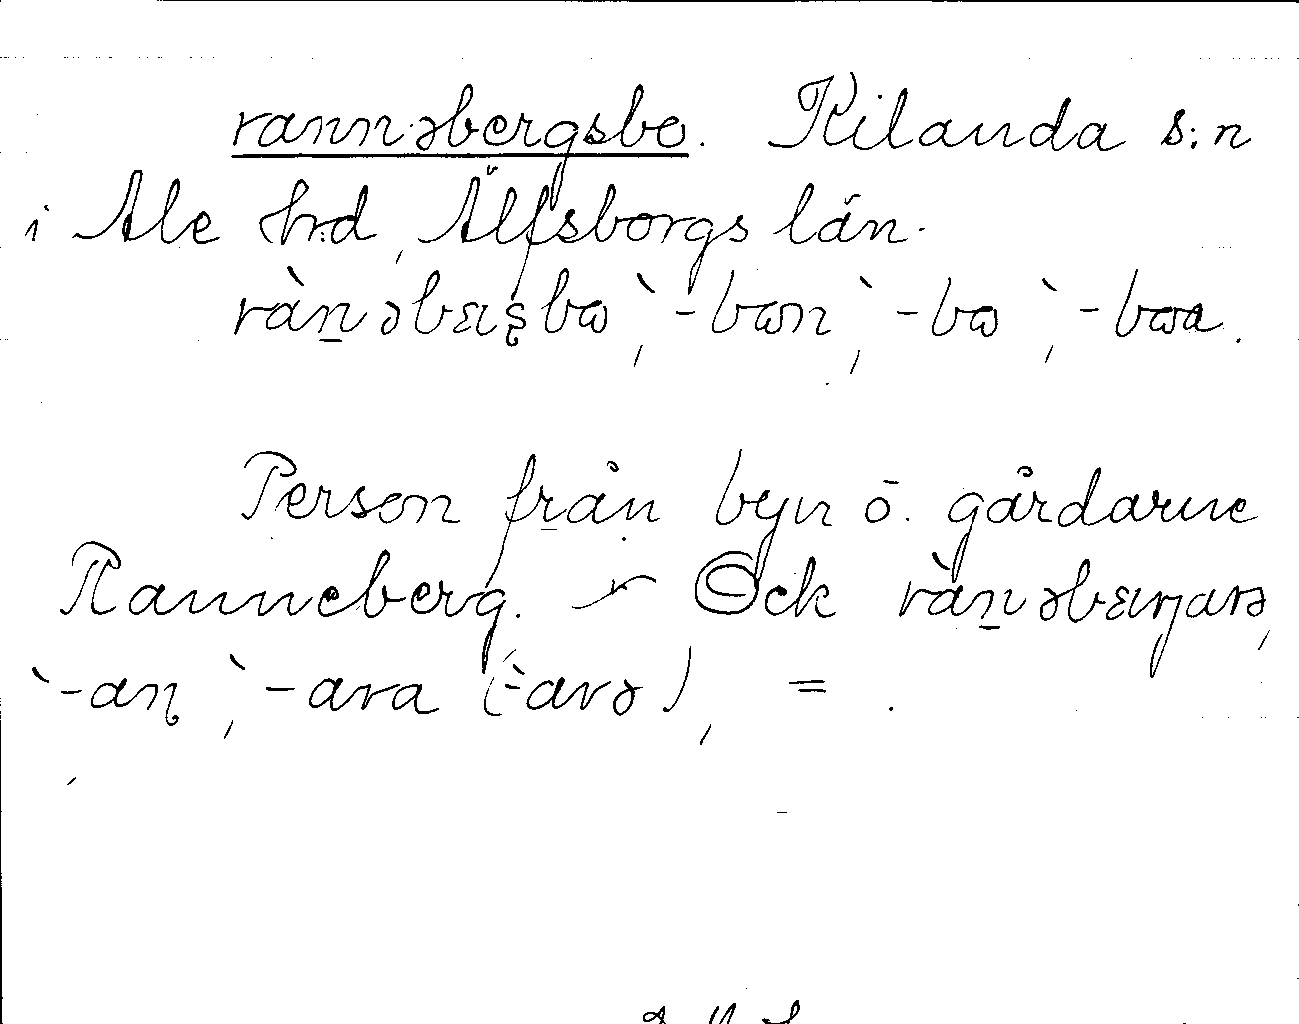 rannəbergsbo. Kilanda s:n
i Ale hrd, Älfsborgs län.
ràn̲əbɛɹʂbɷ, `-bɷn, `-bɷ, `-bɷa.
Person från byn o. gårdarne
Ranneberg. – Ock ràn̲əbɛɹŋarə,
`-aɳ, `-ara (`-arə), = .